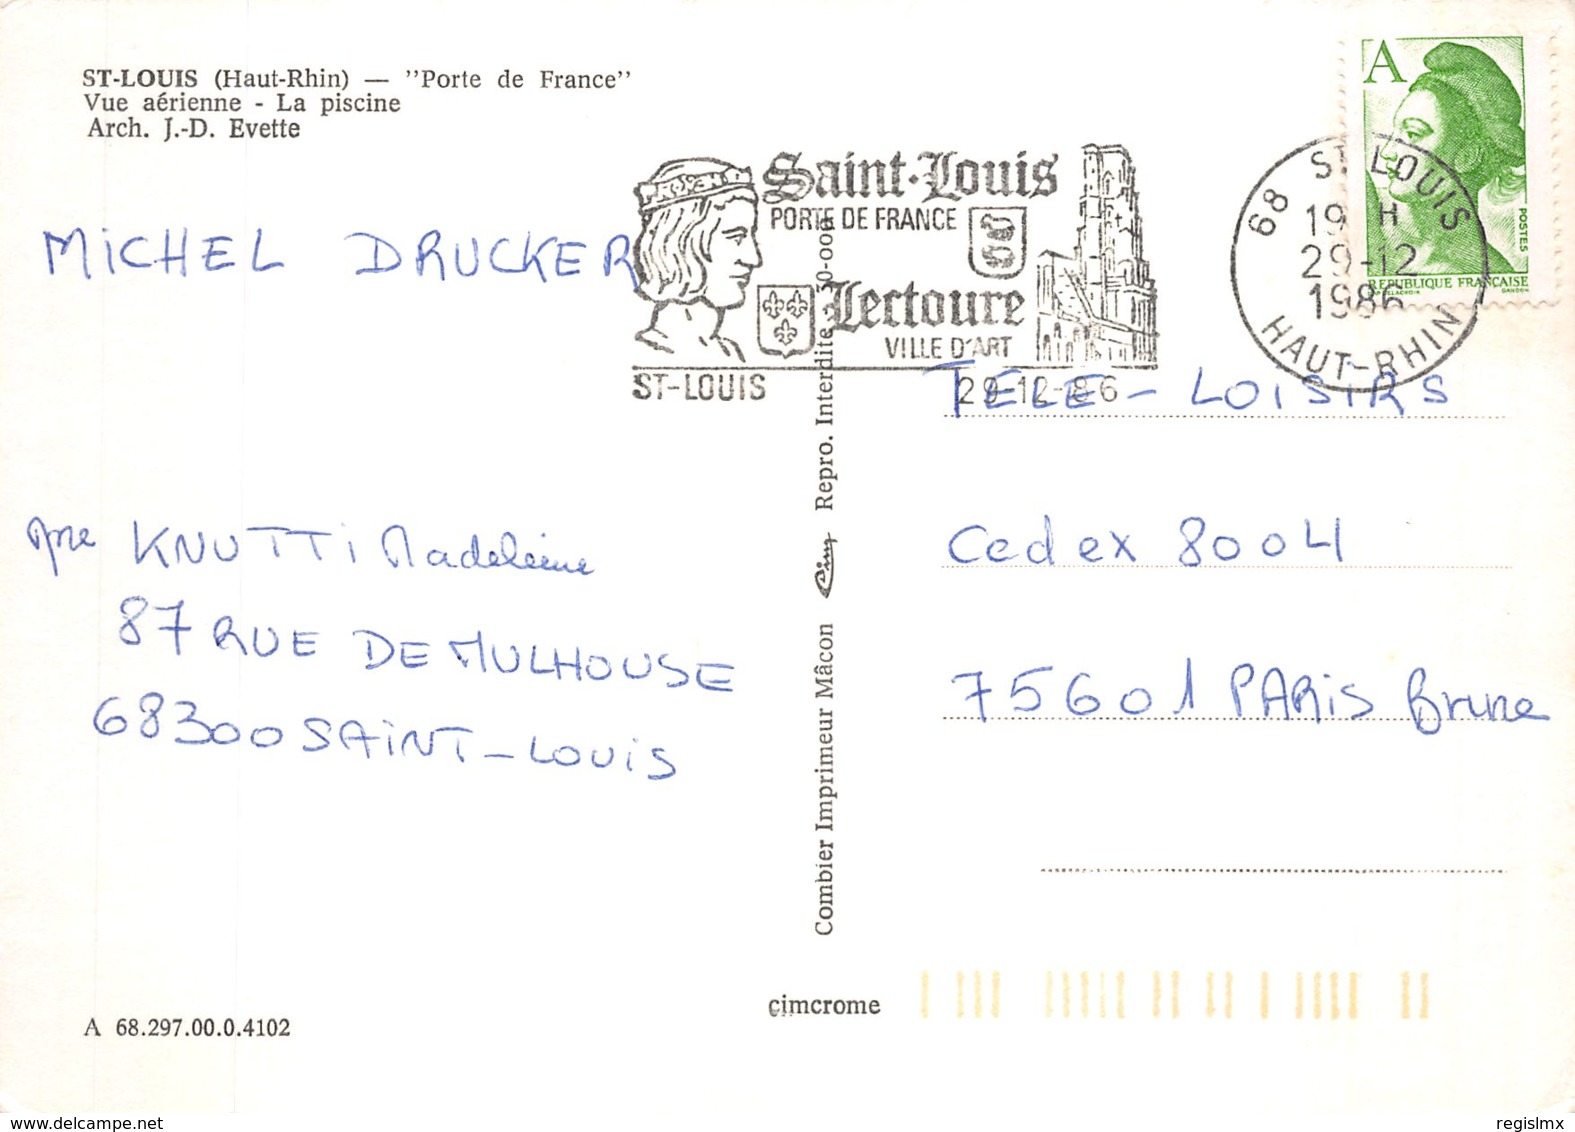 ST-LOUIS (Haut-Rhin) — ''Porte de France''
Vue aérienne - La piscine
Arch. J.-D. Evette
MICHEL DRUCKER
Mme KNUTTI Madeleine
87 RUE DE MULHOUSE
68300 SAINT-LOUIS
A 68.297.00.0.4102
Saint-Louis
PORTE DE FRANCE
Lectoure
VILLE D'ART
ST-LOUIS
29-12-86
Combier Imprimeur Mâcon
Repro. Interdite
cimcrome
A
POSTES
REPUBLIQUE FRANÇAISE
DELACROIX
GANDON
68 ST LOUIS
19 H
29-12
1986
HAUT-RHIN
TELE-LOISIRS
Cedex 8004
75601 PARIS Brune
delcampe.net
regislmx